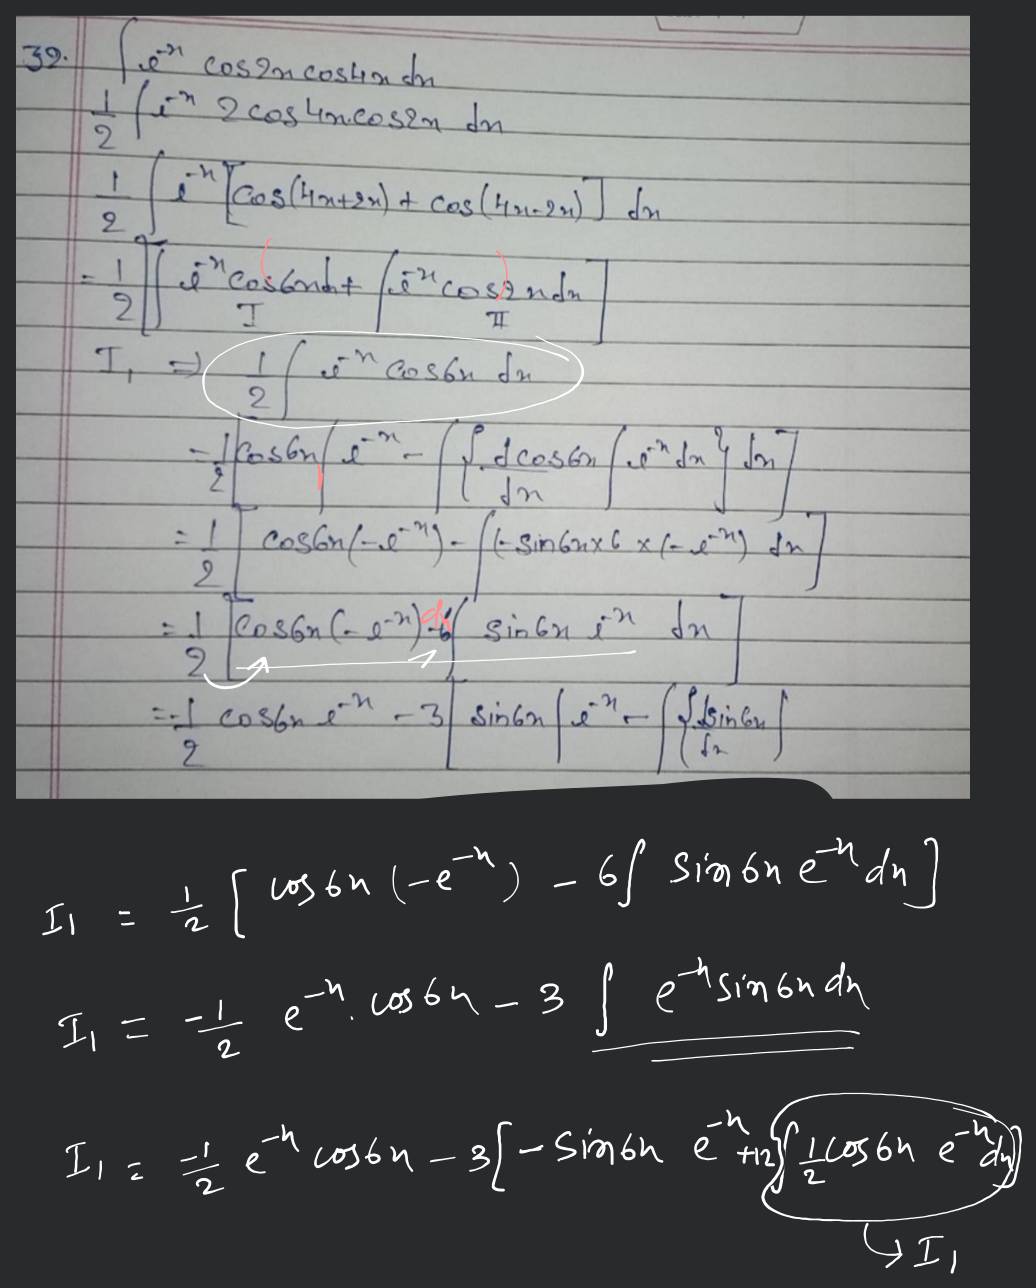 39. ∫ e^-x cos2x cos4x dx
1/2 ∫ e^-x 2 cos4x.cos2x dx
1/2 ∫ e^-x [cos(4x+2x) + cos(4x-2x)] dx
= 1/2 [∫ e^-x cos6x dx + ∫ e^-x cos2x dx]
I II
I₁ ⇒ 1/2 ∫ e^-x cos6x dx
= 1/2 [cos6x ∫ e^-x - ∫ { d cos6x/dx ∫ e^-x dx } dx]
= 1/2 [cos6x (-e^-x) - ∫ (-sin6x × 6 × (-e^-x) dx]
= 1/2 [cos6x (-e^-x) dx -6 ∫ sin6x e^-x dx]
= -1/2 cos6x e^-x - 3 [sin6x ∫ e^-x - ∫ { d sin6x/dx ∫
I₁ = 1/2 [ cos6x (-e^-x) - 6 ∫ sin6x e^-x dx ]
I₁ = -1/2 e^-x . cos6x - 3 ∫ e^-x sin6x dx
I₁ = -1/2 e^-x cos6x - 3 [ - sin6x e^-x +12 ∫ 1/2 cos6x e^-x dx ]
↳ I₁